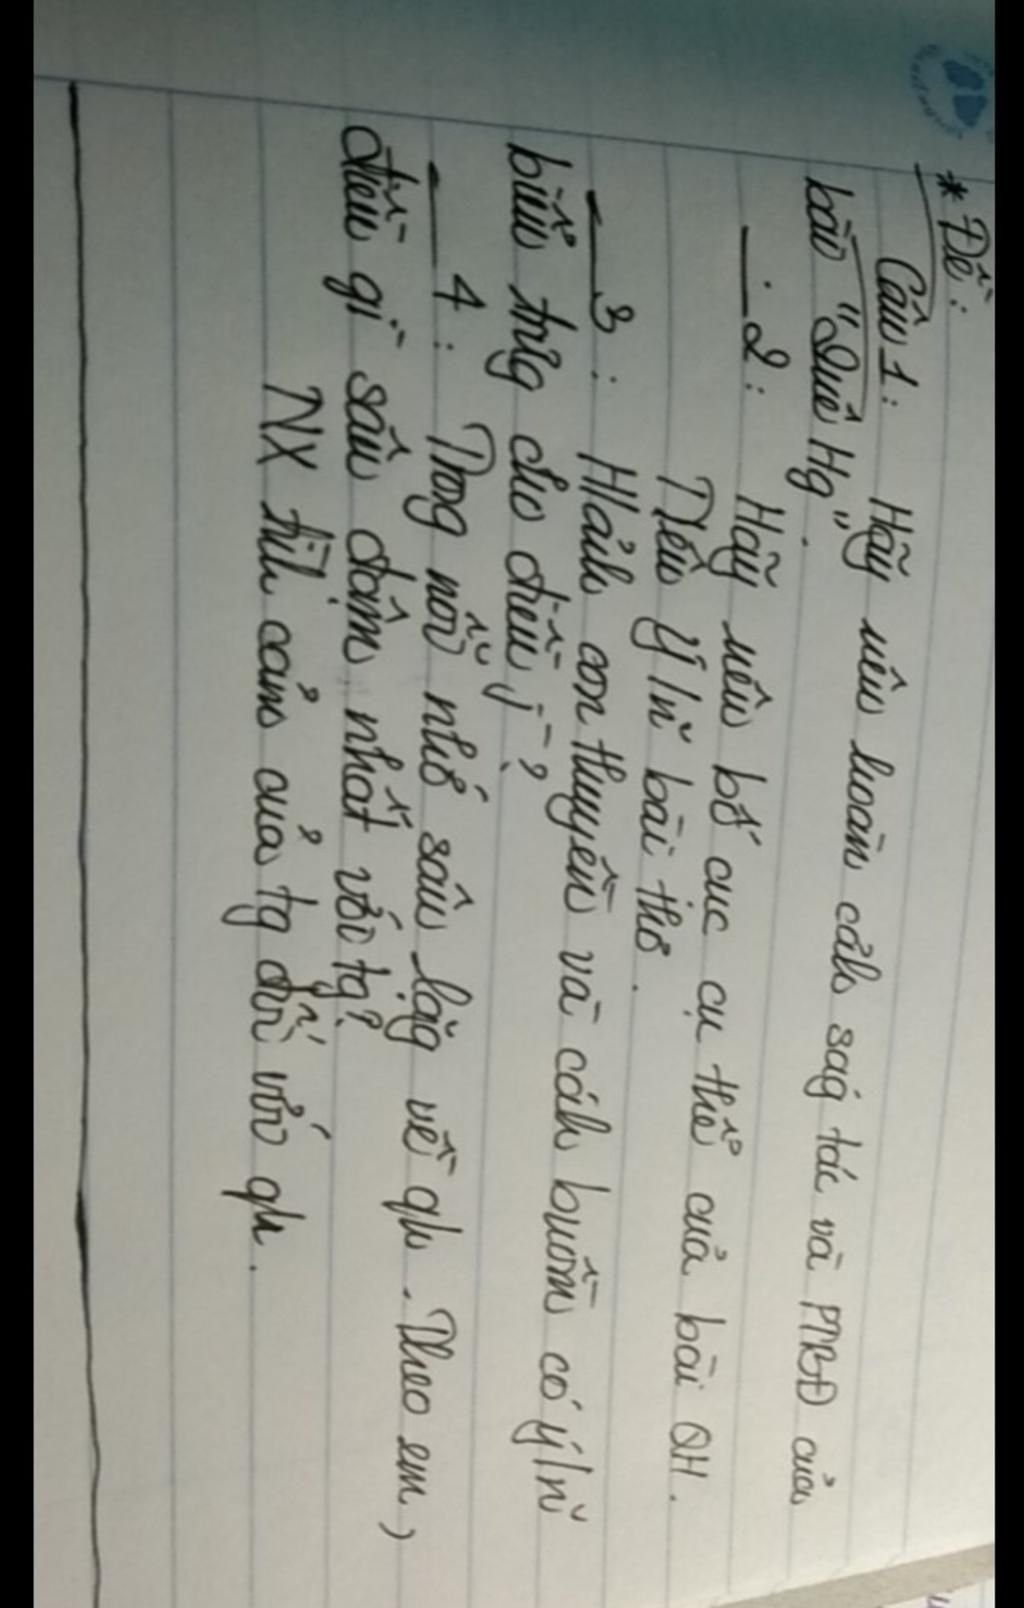 * Đề:
Câu 1: Hãy nêu hoàn cảhság tác và PTBĐ của
bài "Quê Hg".
__ 2: Hãy nêu bố cục cụ thể của bài QH.
Nêu ý/n~ bài thơ.
__ 3: Hảnh con thuyền và cáh buồm có ý/n~
biểu trưg cho điều j?
__ 4: Trog nỗi nhớ sâu lặg về qh. Theo em,
điều gì sâu đậm nhất với tg?
NX tìh cảm của tg đối với qh.